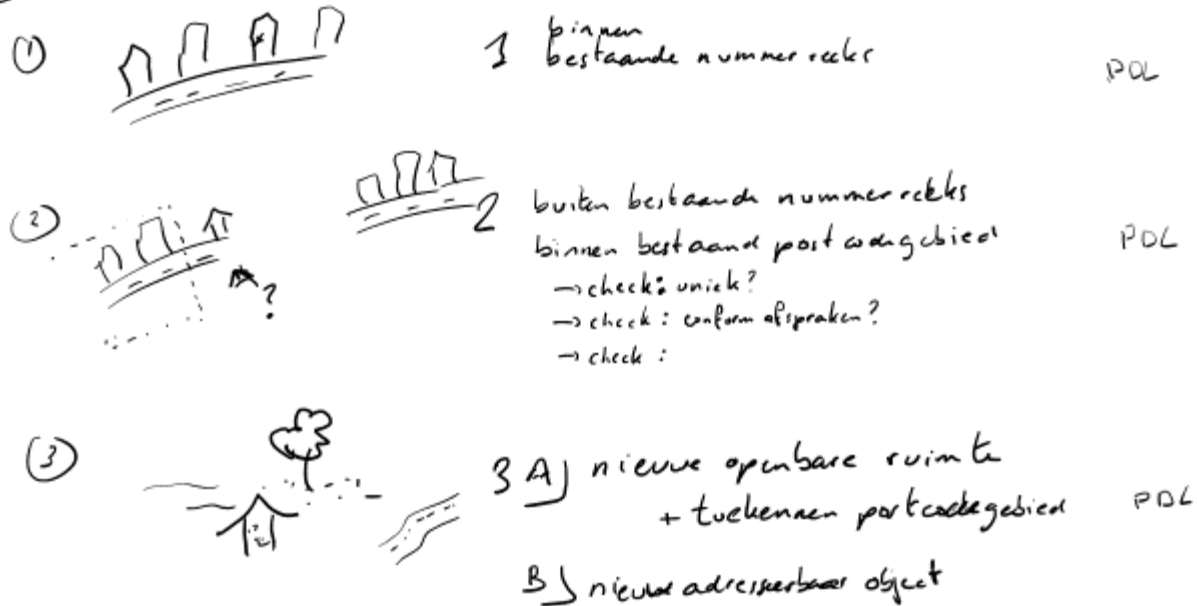 ① 1 binnen
bestaande nummerreeks PDL
② 2 buiten bestaande nummerreeks
binnen bestaand postcodegebied PDL
→ check: uniek?
→ check: conform afspraken?
→ check:
?
③ 3 A) nieuwe openbare ruimte
+ toekennen postcodegebied PDL
B) nieuw adresseerbaar object